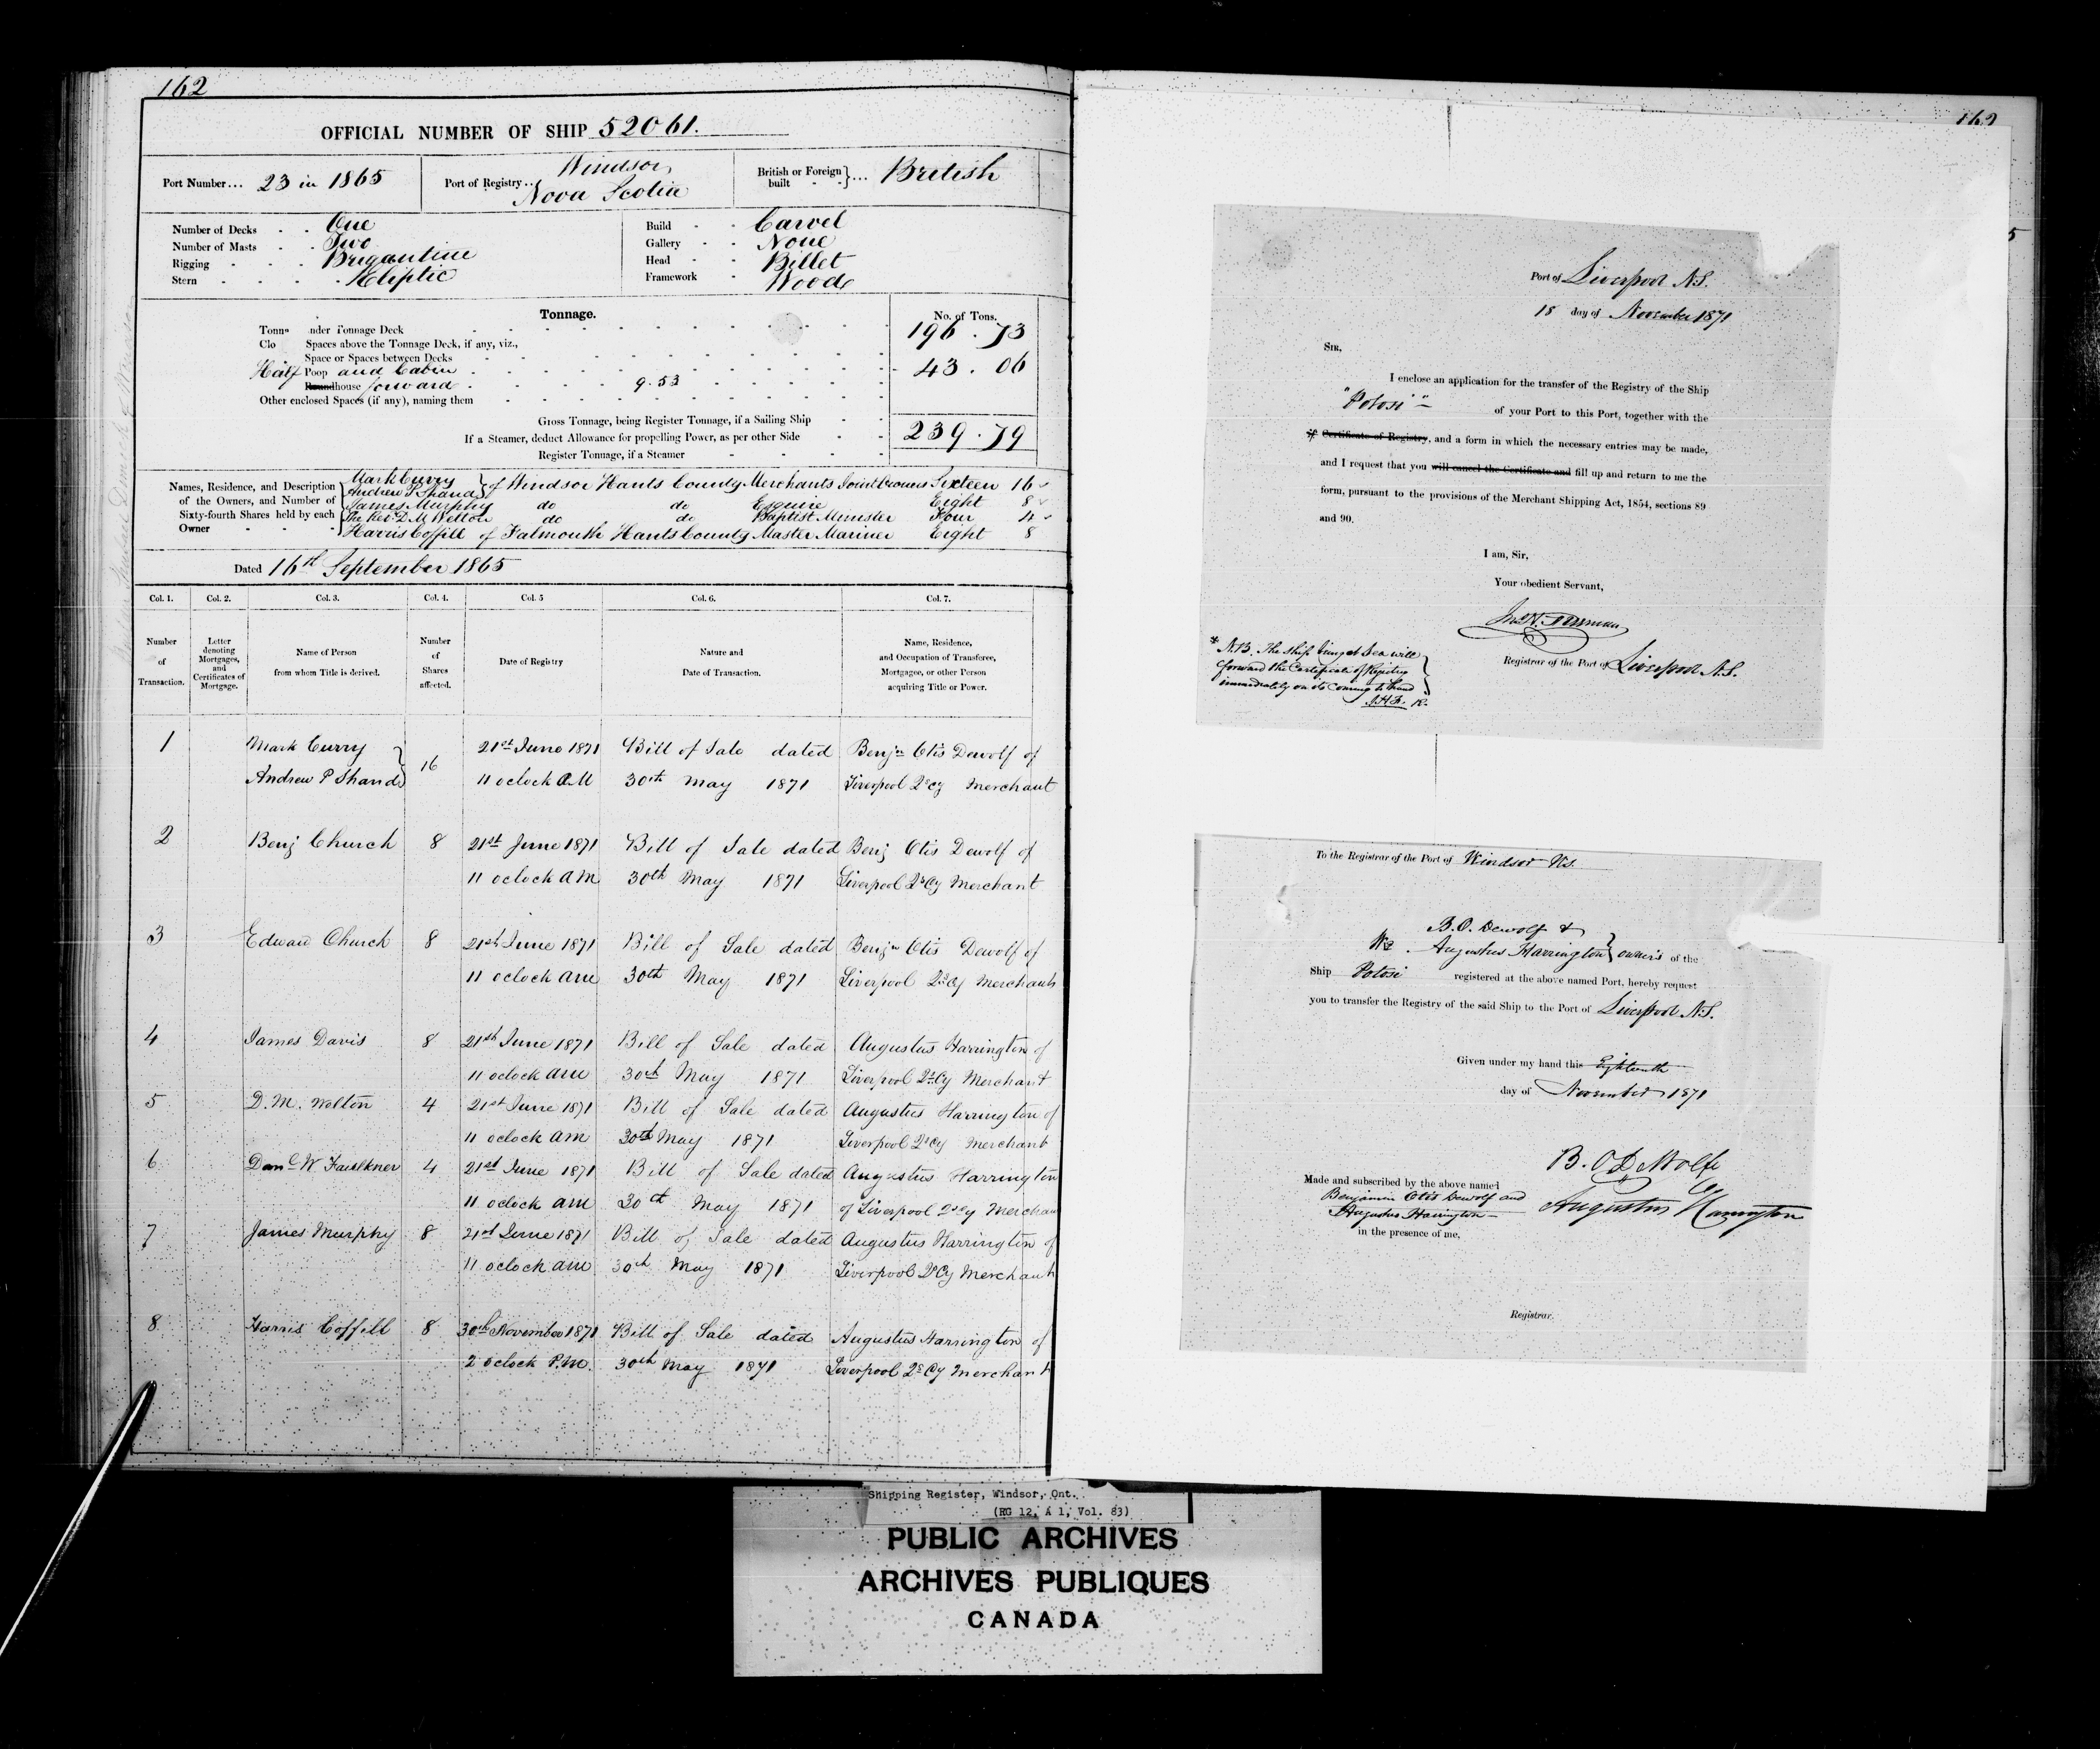 162
OFFICIAL NUMBER OF SHIP 52061.
Port Number... 23 in 1865
Port of Registry.. Windsor, Nova Scotia
British or Foreign built } ... British
Number of Decks - - One
Number of Masts - - Two
Rigging - - - Brigantine
Stern - - - - Eliptic
Build - - Carvel
Gallery - - None
Head - - Billet
Framework - Wood
Tonnage.
No. of Tons.
Tonn nder Tonnage Deck 196.73
Clo Spaces above the Tonnage Deck, if any, viz.,
Space or Spaces between Decks
Half Poop and Cabin 43.06
Roundhouse forward 9.53
Other enclosed Spaces (if any), naming them
Gross Tonnage, being Register Tonnage, if a Sailing Ship 239.79
If a Steamer, deduct Allowance for propelling Power, as per other Side
Register Tonnage, if a Steamer
Names, Residence, and Description of the Owners, and Number of Sixty-fourth Shares held by each Owner
Mark Curry
Andrew P Shand } of Windsor Hants County Merchants Joint Owners Sixteen 16
James Murphy do do Esquire Eight 8
The Rev. D. M. Welton do do Baptist Minister Four 4
Harris Coffill of Falmouth Hants County Master Mariner Eight 8
Dated 16th September 1865
Col. 1. Col. 2. Col. 3. Col. 4. Col. 5 Col. 6. Col. 7.
Number of Transaction.
Letter denoting Mortgages, and Certificates of Mortgage.
Name of Person from whom Title is derived.
Number of Shares affected.
Date of Registry
Nature and Date of Transaction.
Name, Residence, and Occupation of Transferee, Mortgagee, or other Person acquiring Title or Power.
1 Mark Curry } 16 21st June 1871 Bill of Sale dated Benjn Otis Dewolf of
Andrew P Shand 11 oclock A.M 30th May 1871 Liverpool 2s Cy Merchant
2 Benj Church 8 21st June 1871 Bill of Sale dated Benj Otis Dewolf of
11 oclock AM 30th May 1871 Liverpool 2s Cy Merchant
3 Edward Church 8 21st June 1871 Bill of Sale dated Benjn Otis Dewolf of
11 oclock AM 30th May 1871 Liverpool 2s Cy Merchant
4 James Davis 8 21st June 1871 Bill of Sale dated Augustus Harrington of
11 oclock AM 30th May 1871 Liverpool 2s Cy Merchant
5 D. M. Welton 4 21st June 1871 Bill of Sale dated Augustus Harrington of
11 oclock AM 30th May 1871 Liverpool 2s Cy Merchant
6 Danl W Faulkner 4 21st June 1871 Bill of Sale dated Augustus Harrington
11 oclock AM 30th May 1871 of Liverpool 2s Cy Merchan
7 James Murphy 8 21st June 1871 Bill of Sale dated Augustus Harrington of
11 oclock AM 30th May 1871 Liverpool 2s Cy Merchant
8 Harris Coffill 8 30th November 1871 Bill of Sale dated Augustus Harrington of
2 oclock P.M. 30th May 1871 Liverpool 2s Cy Merchant
162
5
Port of Liverpool N.S.
18 day of November 1871
SIR,
I enclose an application for the transfer of the Registry of the Ship
"Potosi" of your Port to this Port, together with the
* Certificate of Registry, and a form in which the necessary entries may be made,
and I request that you will cancel the Certificate and fill up and return to me the
form, pursuant to the provisions of the Merchant Shipping Act, 1854, sections 89
and 90.
I am, Sir,
Your obedient Servant,
Registrar of the Port of Liverpool N.S.
* N.B. The ship being at Sea will
forward the Certificate of Registry
immediately on its coming to hand
To the Registrar of the Port of Windsor N.S.
B. O. Dewolf &
We Augustus Harrington } owners of the
Ship Potosi registered at the above named Port, hereby request
you to transfer the Registry of the said Ship to the Port of Liverpool N.S.
Given under my hand this Eighteenth
day of November 1871
B. O DeWolfe
Augustus Harrington
Made and subscribed by the above named
Benjamin Otis Dewolf and
Augustus Harrington
in the presence of me,
Registrar.
Shipping Register, Windsor, Ont.
(RG 12, A 1, Vol. 83)
PUBLIC ARCHIVES
ARCHIVES PUBLIQUES
CANADA